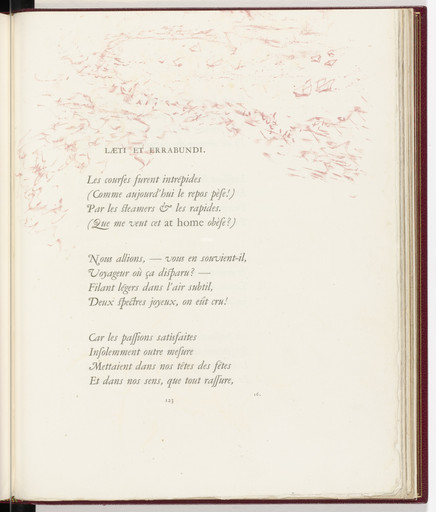 LÆTI ET ERRABUNDI.
Les courſes furent intrépides
(Comme aujourd'hui le repos pèſe!)
Par les steamers & les rapides.
(Que me veut cet at home obèſe?)
Nous allions, — vous en souvient-il,
Voyageur où ça diſparu? —
Filant légers dans l'air subtil,
Deux ſpectres joyeux, on eût cru!
Car les paſſions satiſfaites
Inſolemment outre meſure
Mettaient dans nos têtes des fêtes
Et dans nos sens, que tout raſſure,
123
16.